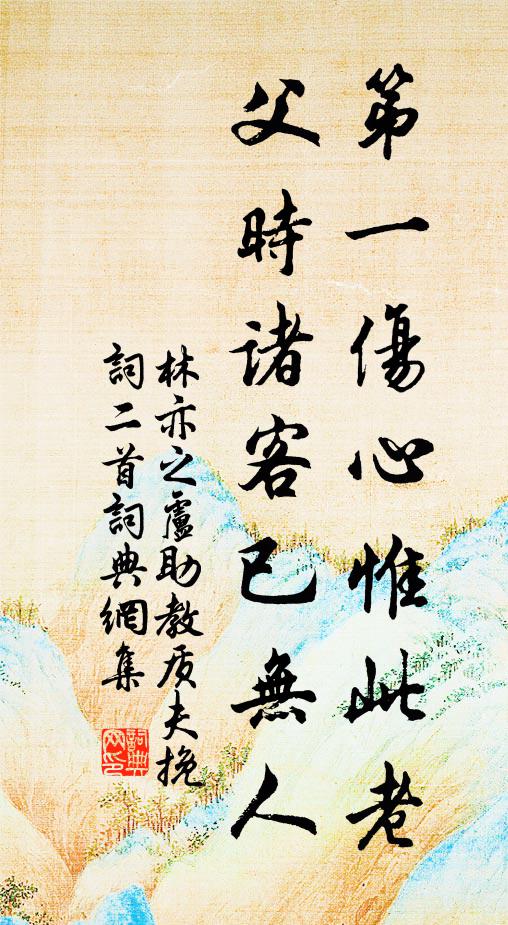 第一傷心惟此老
父時諸客已無人
林亦之盧助教质夫挽
詞二首詞典網集
詞典
网印